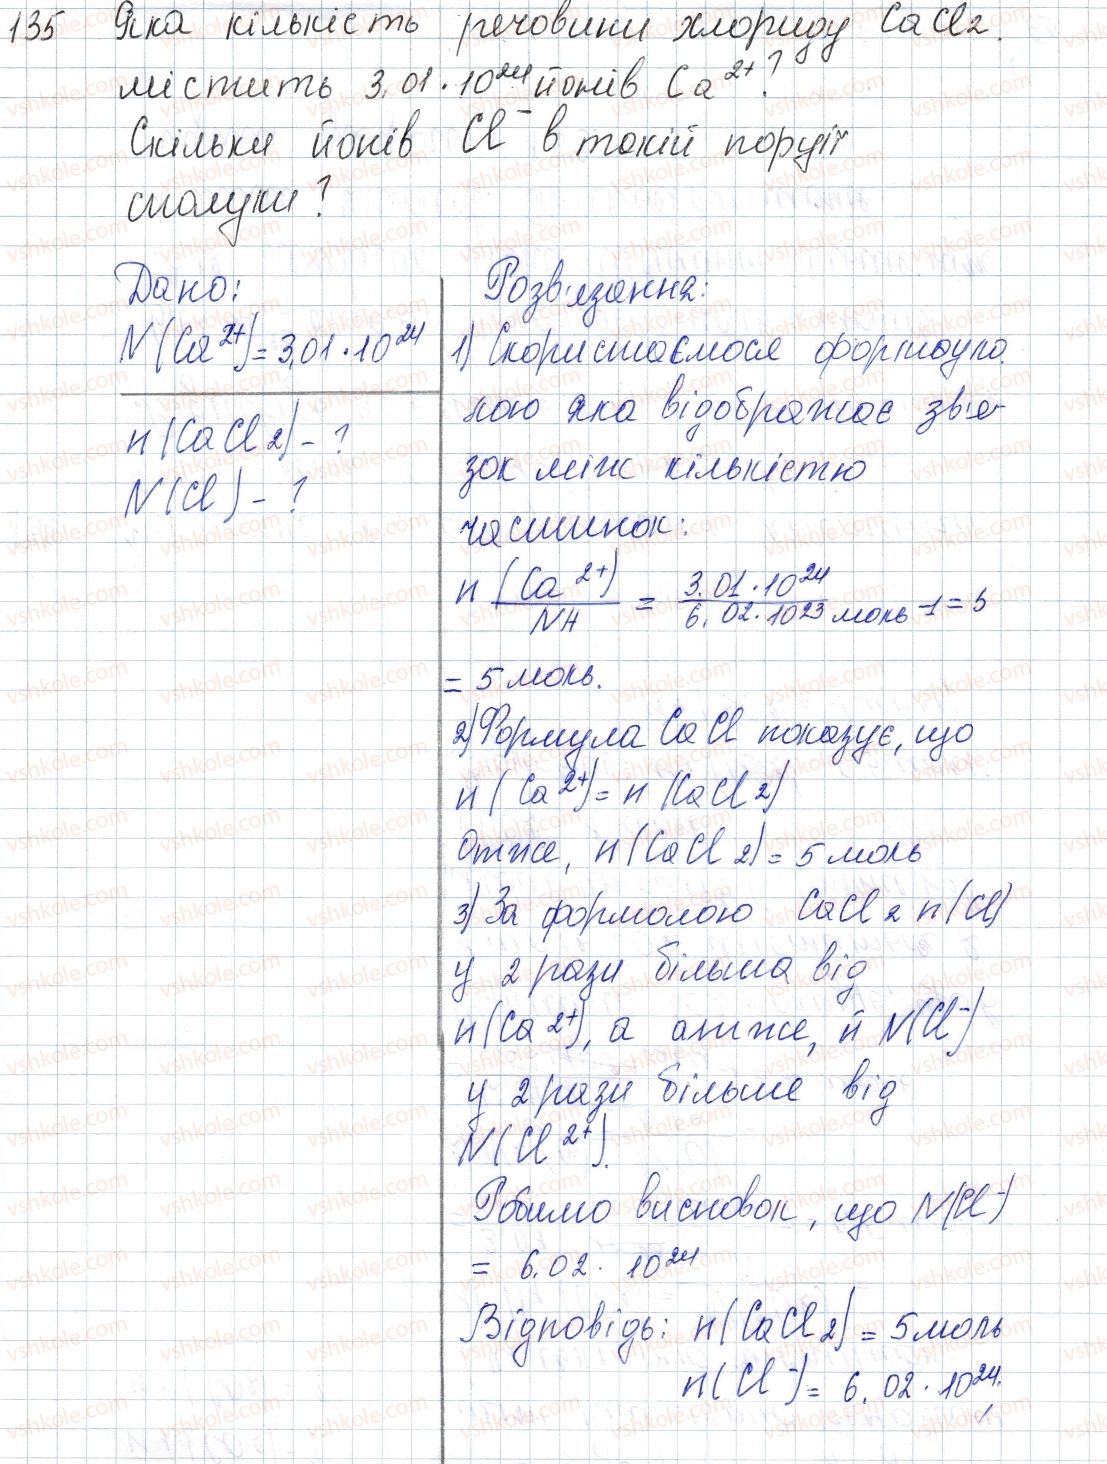 135 Яка кількість речовини хлориду CaCl2.
містить 3,01·10²⁴ йонів Ca²⁺?
Скільки йонів Cl⁻ в такій порції
сполуки?
Дано:
N(Ca²⁺)=3,01·10²⁴
n(CaCl2)-?
N(Cl)-?
Розв'язання:
1) Скористаємося формоуло
кою яка відображає зв'я-
зок між кількістю
частинок:
n (Ca²⁺)/NA = 3.01·10²⁴/6,02·10²³ моль -1 = 5
= 5 моль.
2) Формула CaCl показує, що
n(Ca²⁺)=n(CaCl2)
Отже, n(CaCl2)=5 моль
3) За формолою CaCl2 n(Cl)
у 2 рази більша від
n(Ca²⁺), а отже, й N(Cl⁻)
у 2 рази більше від
N(Cl²⁺).
Робимо висновок, що N(Cl⁻)
= 6.02· 10²⁴
Відповідь: n(CaCl2)=5 моль
n(Cl⁻)= 6,02·10²⁴.